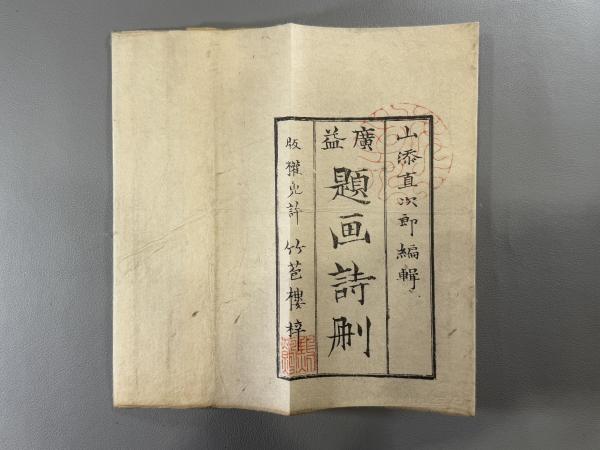 山添直次郎編輯
廣益
題画詩刪
版權免許 竹苞樓梓